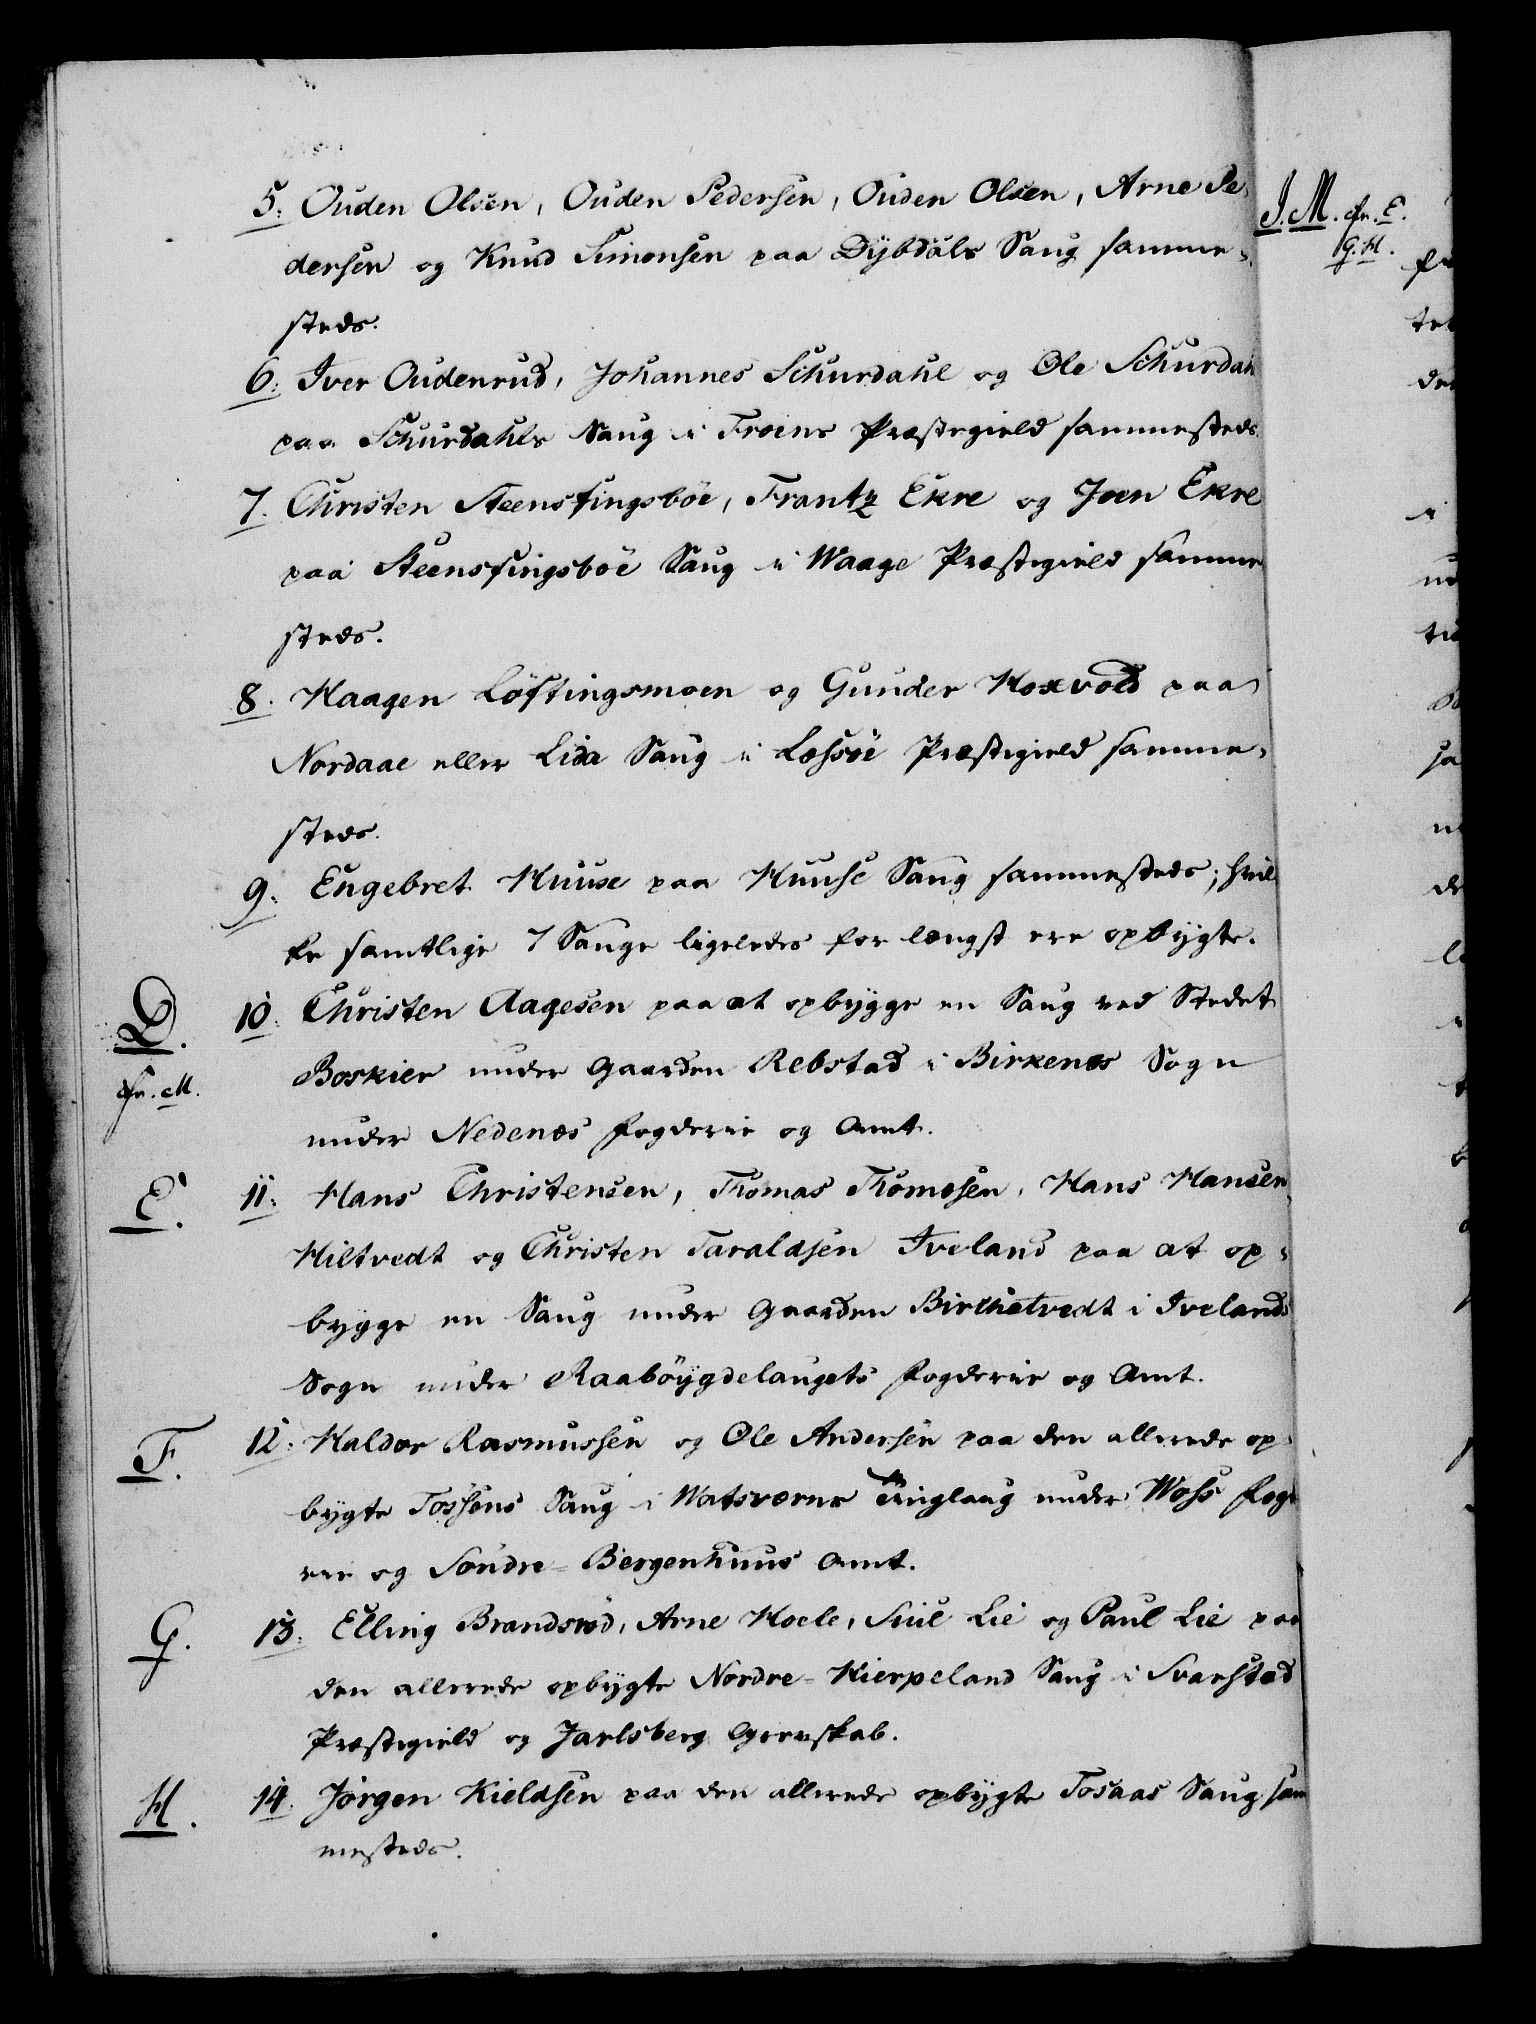 5. Ouden Olsen, Ouden Pedersen, Ouden Olsen, Arne Pe-
dersen og Knud Simonsen paa Dybdals Saug samme-
steds.
6. Iver Oudenrud, Johannes Schurdahl og Ole Schurdah
paa Schurdahls Saug i Froens Præstegield sammesteds.
7. Christen Steensfingsböe, Frantz Ekre og Joen Ekre
paa Steensfingsböe Saug i Waage Præstegield samme
steds.
8. Haagen Löftingsmoen og Gunder Hoxvold paa
Nordaae eller Lida Saug i Lessöe Præstegield samme-
steds.
9. Engebret Huuse paa Huuse Saug sammesteds; hvil
ke samtlige 7 Sauge ligeledes for længst ere opbygte.
D.
cfr. M.
10. Christen Aagesen paa at opbygge en Saug ved Stedet
Boskier under Gaarden Rebstad i Birkenes Sogn
under Nedenes Fogderie og Amt.
E.
11. Hans Christensen, Thomas Thomesen, Hans Hansen
Hiltvedt og Christen Taraldsen Iveland paa at op-
bygge en Saug under Gaarden Birthetvedt i Ivelands
Sogn under Raaböygdelaugets Fogderie og Amt.
F.
12. Haldor Rasmussen og Ole Andersen paa den allerede op-
bygte Tossens Saug i Watsværns Tinglaug under Woss Fogd
erie og Söndre-Bergenhuus Amt.
G.
13. Elling Brandsröd, Arne Hoele, Siul Lie og Paul Lie paa
den allerede opbygte Nordre-Hierpeland Saug i Svarstad
Præstegield og Jarlsberg Grevskab.
H.
14. Jörgen Kieldsen paa den allerede opbygte Tosaas Saug sam
mesteds.
J. M. cfr. E.
G. H.